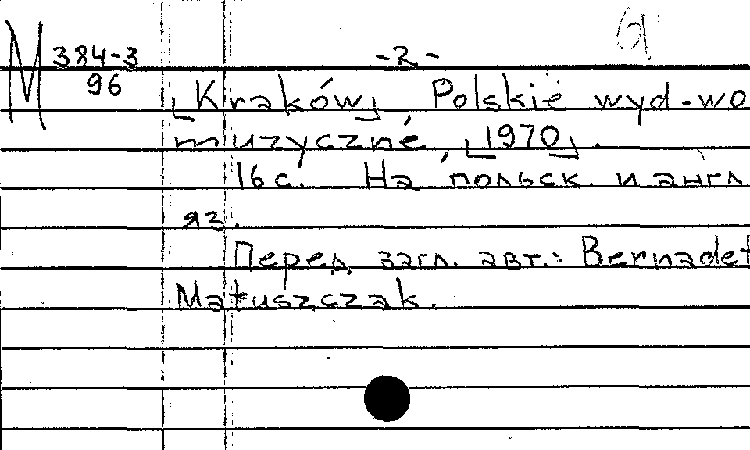 М 384-3 -2-
96
[Kraków], Polskie wyd-wo
muzyczne, [1970].
16 с. На польск. и англ.
яз.
Перед загл. авт.: Bernadet
Matuszczak.